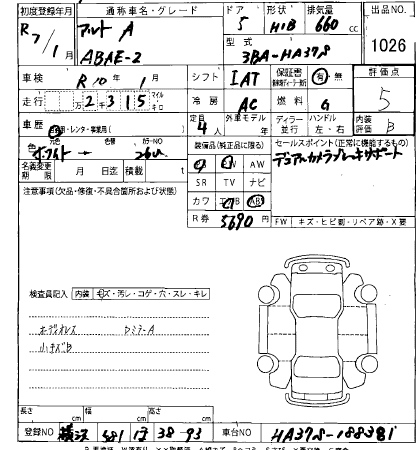 初度登録年月 通称車名・グレード ドア 形状 排気量 出品NO.
R7/1 アルト A 5 H/B 660 cc 1026
ABAE-2 型式 3BA-HA37S
車検 R10年1月 シフト IAT 保証書 有・無 評価点
走行 2315 マイル Km 冷房 AC 燃料 G 5
車歴 自家用・レンタ・実験用( ) 定員 4人 外車モデル 年 ディーラー 並行 ハンドル 左・右 内装評価 B
色 元色 色替 カラーNO 26U 装備品(純正品に限る) セールスポイント(正常に機能するもの)
名義変更期限 月 日迄 積載 t AW デュアルカメラブレーキサポート
注意事項(欠品・修復・不具合箇所および状態) SR TV ナビ
カワ AB
R券 5690 FW キズ・ヒビ割・リペア跡・X要
検査員記入 内装 キズ・汚レ・コゲ・穴・スレ・キレ
小キズB
長さ cm 幅 cm 高さ cm
登録NO 横浜 581 38-93 車台NO HA37S-188381